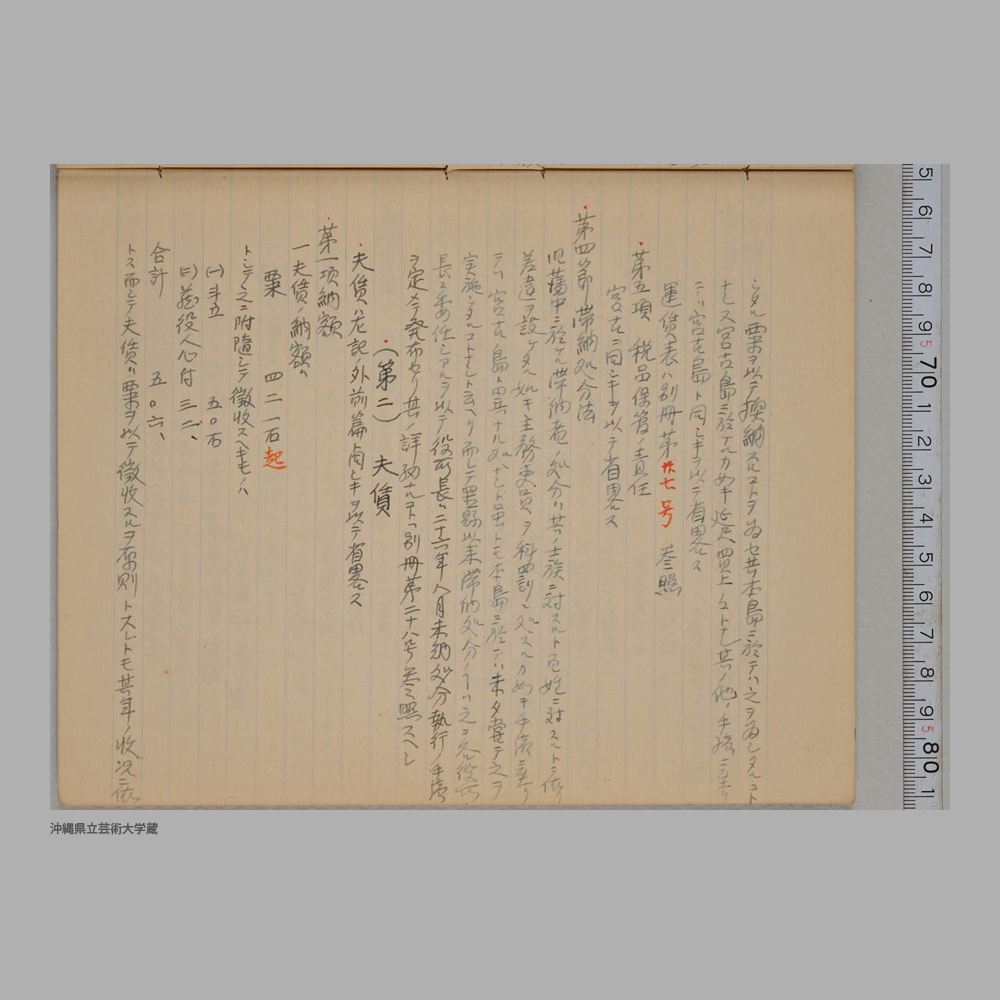 シタル粟ヲ以テ換納スルコトヲ為セ共本島ニ於テハ之ヲ為シタルコト
ナシ又宮古島ニ於ケルカ如キ
ニハ宮古島ト同シキヲ以テ省畧ス
運賃表ハ別冊第廿七号 参照
第五項 税品保管ノ責任
宮古ニ同シキヲ以テ省畧ス
第四節 滞納処分法
旧藩中ニ於ケル滞納者ノ処分ハ其ノ士族ニ対スルト百姓ニ対スルトニ依リ
差違ヲ設ケタル如キ主務吏員ヲ科罰ニ処スルカ如キ手続ニ至リ
テハ宮古島ト異ナル如ナシト雖トモ本島ニ於テハ未タ嘗テ之ヲ
実施シタルコトナシト云ヘリ而シテ置県以来滞納処分ノ事ハ之ヲ各役所
長ニ委任シアルヲ以テ役所長ハ二十六年八月未納処分執行ノ手続
ヲ定メテ発布セリ其ノ詳細ナルコトハ別冊第二十八号参照スヘシ
(第二) 夫賃
夫賃ハ左記ノ外前篇同シキヲ以テ省畧ス
第一項納額
一夫賃ノ納額ハ
粟 四二一石起
トシテ之ニ附随シテ徴収スヘキモノハ
(一)斗立 五〇石
(二)蔵役人心付 三二、
合計 五〇六、
トス而シテ夫賃ハ粟ヲ以テ徴収スルヲ原則トスレトモ其年ノ収況ニ依
沖縄県立芸術大学蔵